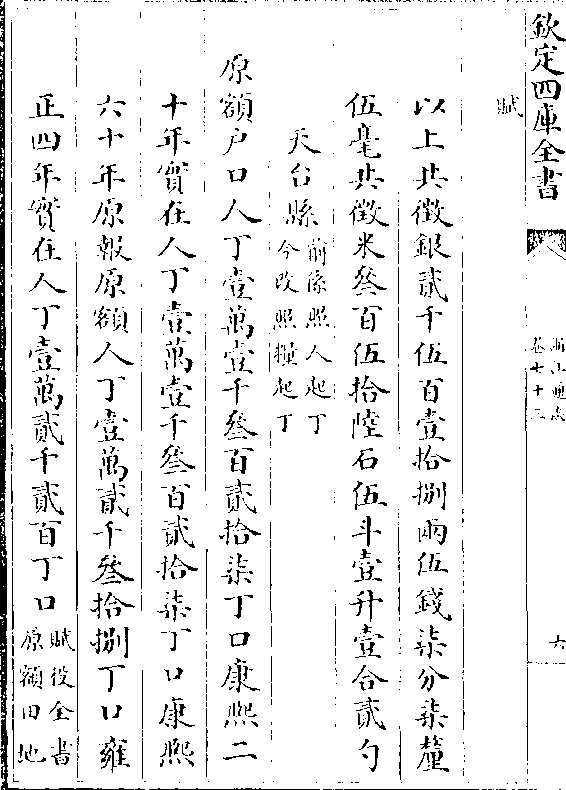 欽定四庫全書
浙江通志
卷七十三
六
賦
以上共徵銀貳千伍百壹拾捌兩伍錢柒分柒釐
伍毫共徵米叄百伍拾陸石伍斗壹升壹合貳勺
天台縣前係照人起丁
今改照糧起丁
原額户口人丁壹萬壹千叄百貳拾柒丁口康熙二
十年實在人丁壹萬壹千叄百貳拾柒丁口康熙
六十年原報原額人丁壹萬貳千叄拾捌丁口雍
正四年實在人丁壹萬貳千貳百丁口賦役全書
原額田地